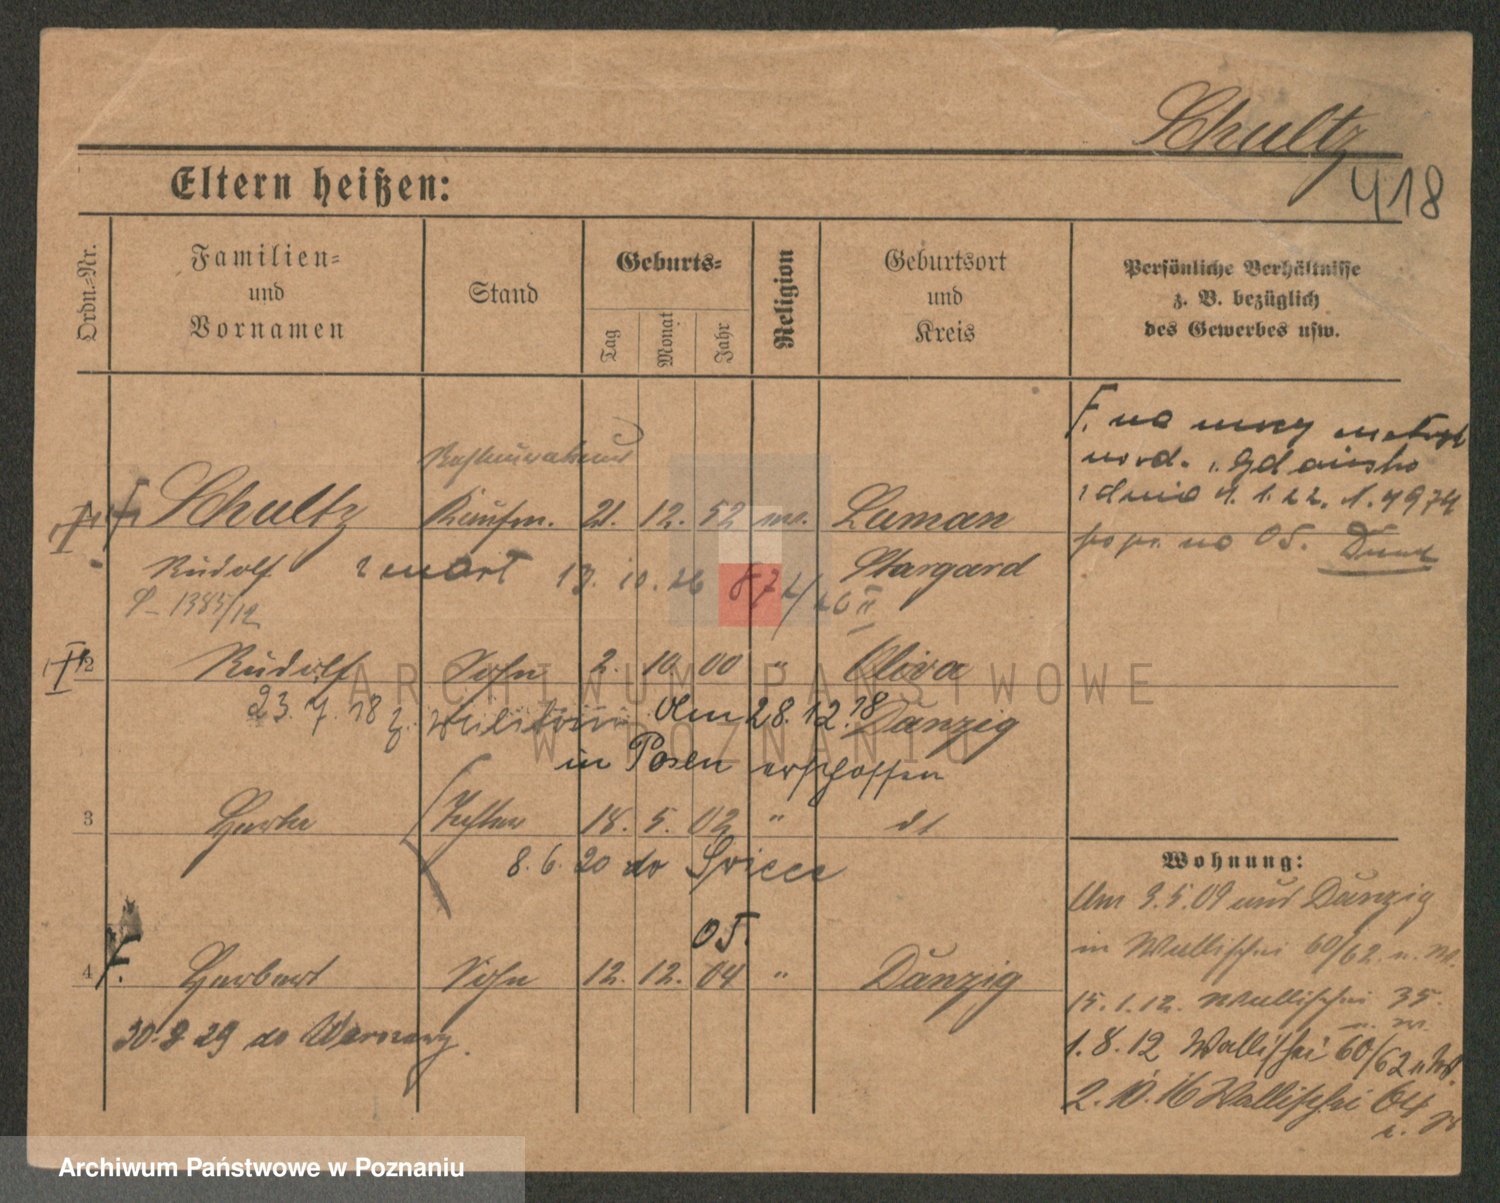 Schultz
418
Eltern heißen:
Ordn.-Nr.
Familien-
und
Vornamen
Stand
Geburts-
Tag
Monat
Jahr
Religion
Geburtsort
und
Kreis
Persönliche Verhältnisse
z. B. bezüglich
des Gewerbes usw.
F. na mocy metryki
urod. Gdańsko
z dnia 1. 1. 22.
popr. na 05.
Schultz Kaufm. 21. 12. 52 Laman
Rudolf zmarł 13. 10. 26 872/26 II Stargard
1385/12
2 Rudolf Sohn 2. 10. 00 " Oliva
23. 7. 18 z. Militär Am 28. 12. 18 Danzig
in Posen erschossen
3 Tochter 18. 5. 02 "
8. 6. 20 do
Wohnung:
Am 3. 5. 09 aus Danzig
in Wallischei 60/62
05.
4 F. Herbert Sohn 12. 12. 04 " Danzig
15. 1. 12. Wallischei 35.
30. 8 29 do
1. 8. 12 Wallischei 60/62
2. 10. 16 Wallischei 64
ARCHIWUM PAŃSTWOWE
W POZNANIU
Archiwum Państwowe w Poznaniu